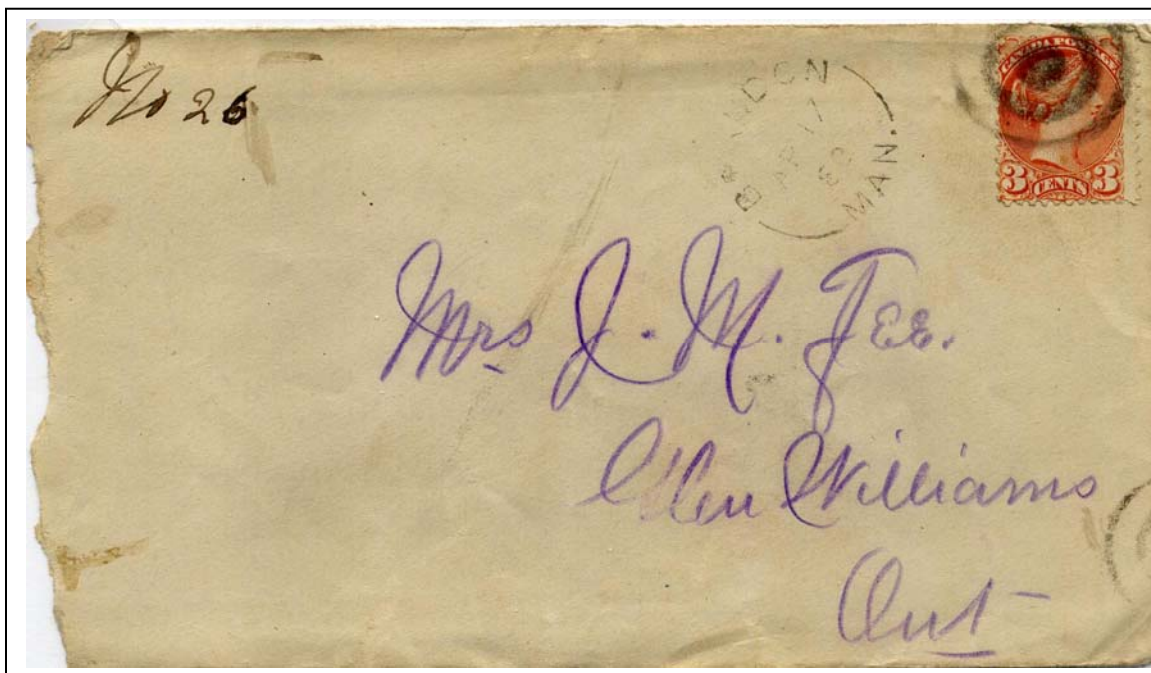 No 26
BRANDON
AP 17
MAN.
CANADA POSTAGE
3 CENTS 3
Mrs J. M. Fee.
Glen Williams
Ont